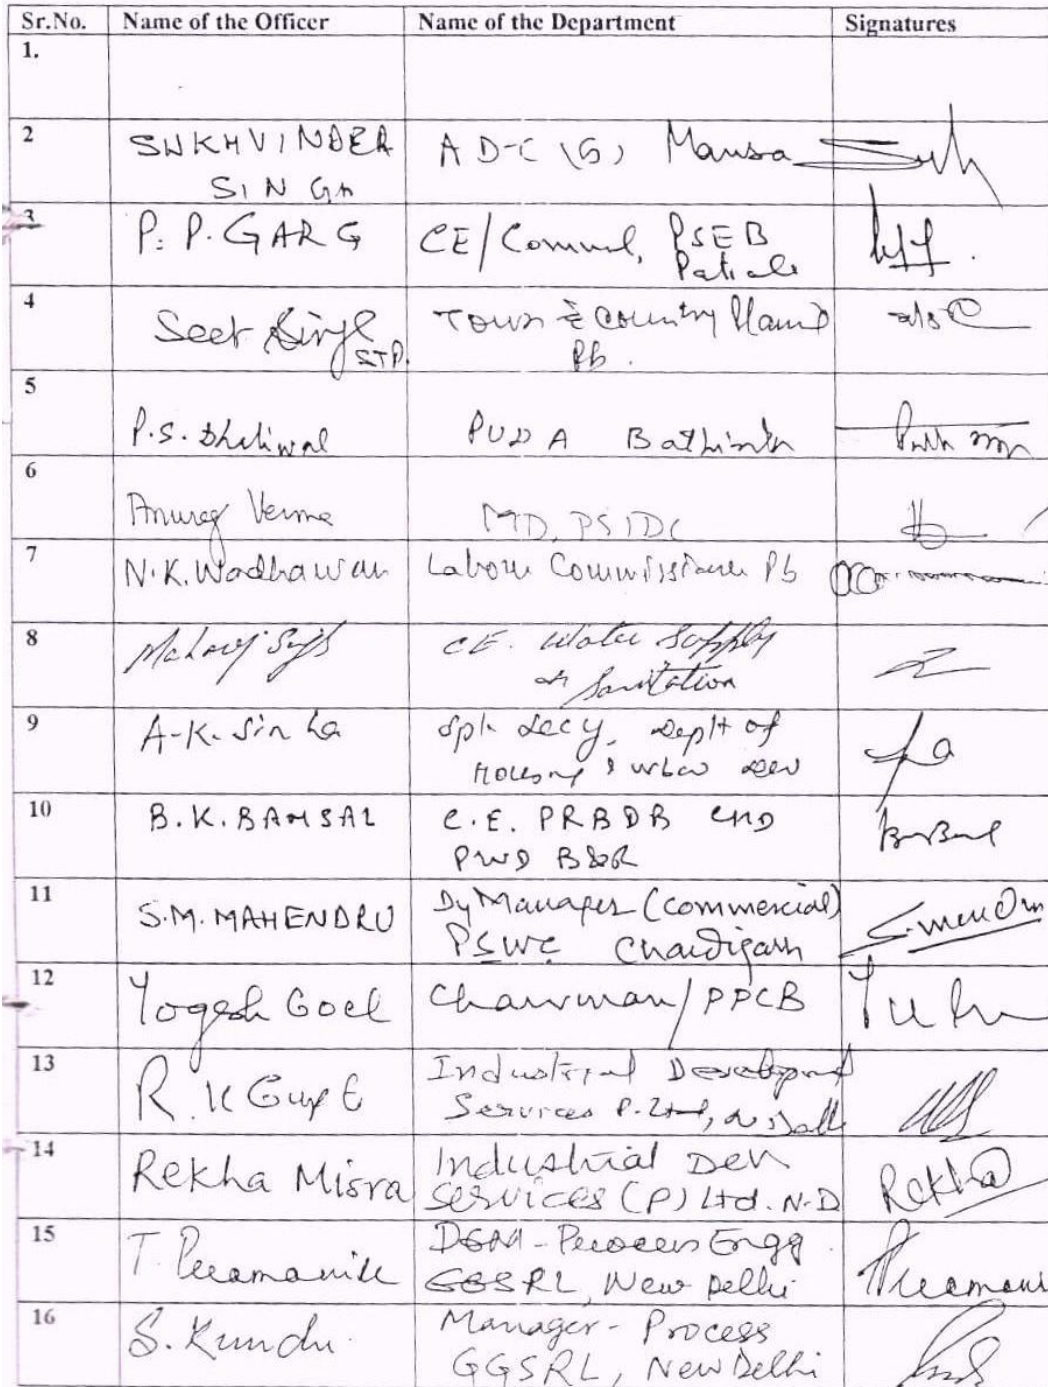 Sr.No. Name of the Officer Name of the Department Signatures
1.
2 SUKHVINDER A D-C (G) Mansa
SINGH
3 P. P. GARG CE/Comml, PSEB
Patiala
4 Singh Town & Country
STP. Pb.
5
P.S. Dhaliwal PUDA Bathinda
6
Anurag Verma MD, PSIDC
7 N.K. Wadhawan Labour Commissioner Pb
8 C.E. Water Supply
& Sanitation
9 A-K. Sinha Spl. Secy. Deptt of
Housing & Urban Dev
10 B.K. BANSAL C.E. PRBDB CHD
PWD B&R
11 S.M. MAHENDRU Dy Manager (commercial)
PSWC Chandigarh
12 Yogesh Goel Chairman/PPCB
13 R. K Gupta Industrial Development
Services P. Ltd, N. Delhi
14 Rekha Misra Industrial Dev Rekha
Services (P) Ltd. N-D
15 T. Peramanik DGM - Process Engg.
GGSRL, New Delhi
16 S. Kundu. Manager - Process
GGSRL, New Delhi